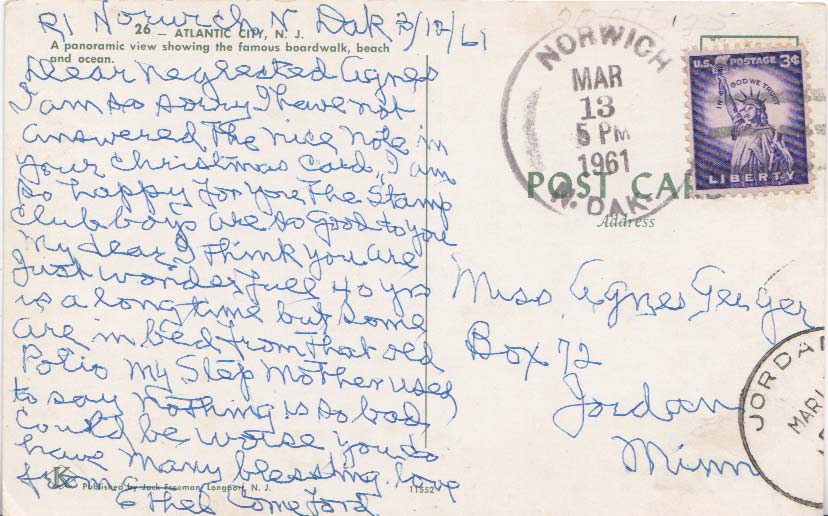 R1 Norwich N Dak 3/12/61
26 — ATLANTIC CITY, N. J.
A panoramic view showing the famous boardwalk, beach
and ocean.
Dear neglected Agnes
I am so sorry I have not
answered The nice note in
your Christmas Card, I am
so happy for you The Stamp
Club boys are so good to you
My dear I Think you are
Just wonderfull 40 yrs
is a long time but some
are in bed from That old
Polio My Step Mother used
to say nothing is so bad,
Could be worse you do
have Many blessing. love
from
Ethel Comeford
K
Published by Jack Freeman, Longport, N. J.
11552
NORWICH
MAR
13
5 PM
1961
N. DAK.
U.S. POSTAGE 3¢
IN GOD WE TRUST
LIBERTY
POST CARD
Address
Miss Agnes Geiger
Box 72
Jordan
Minn
JORDAN
MAR